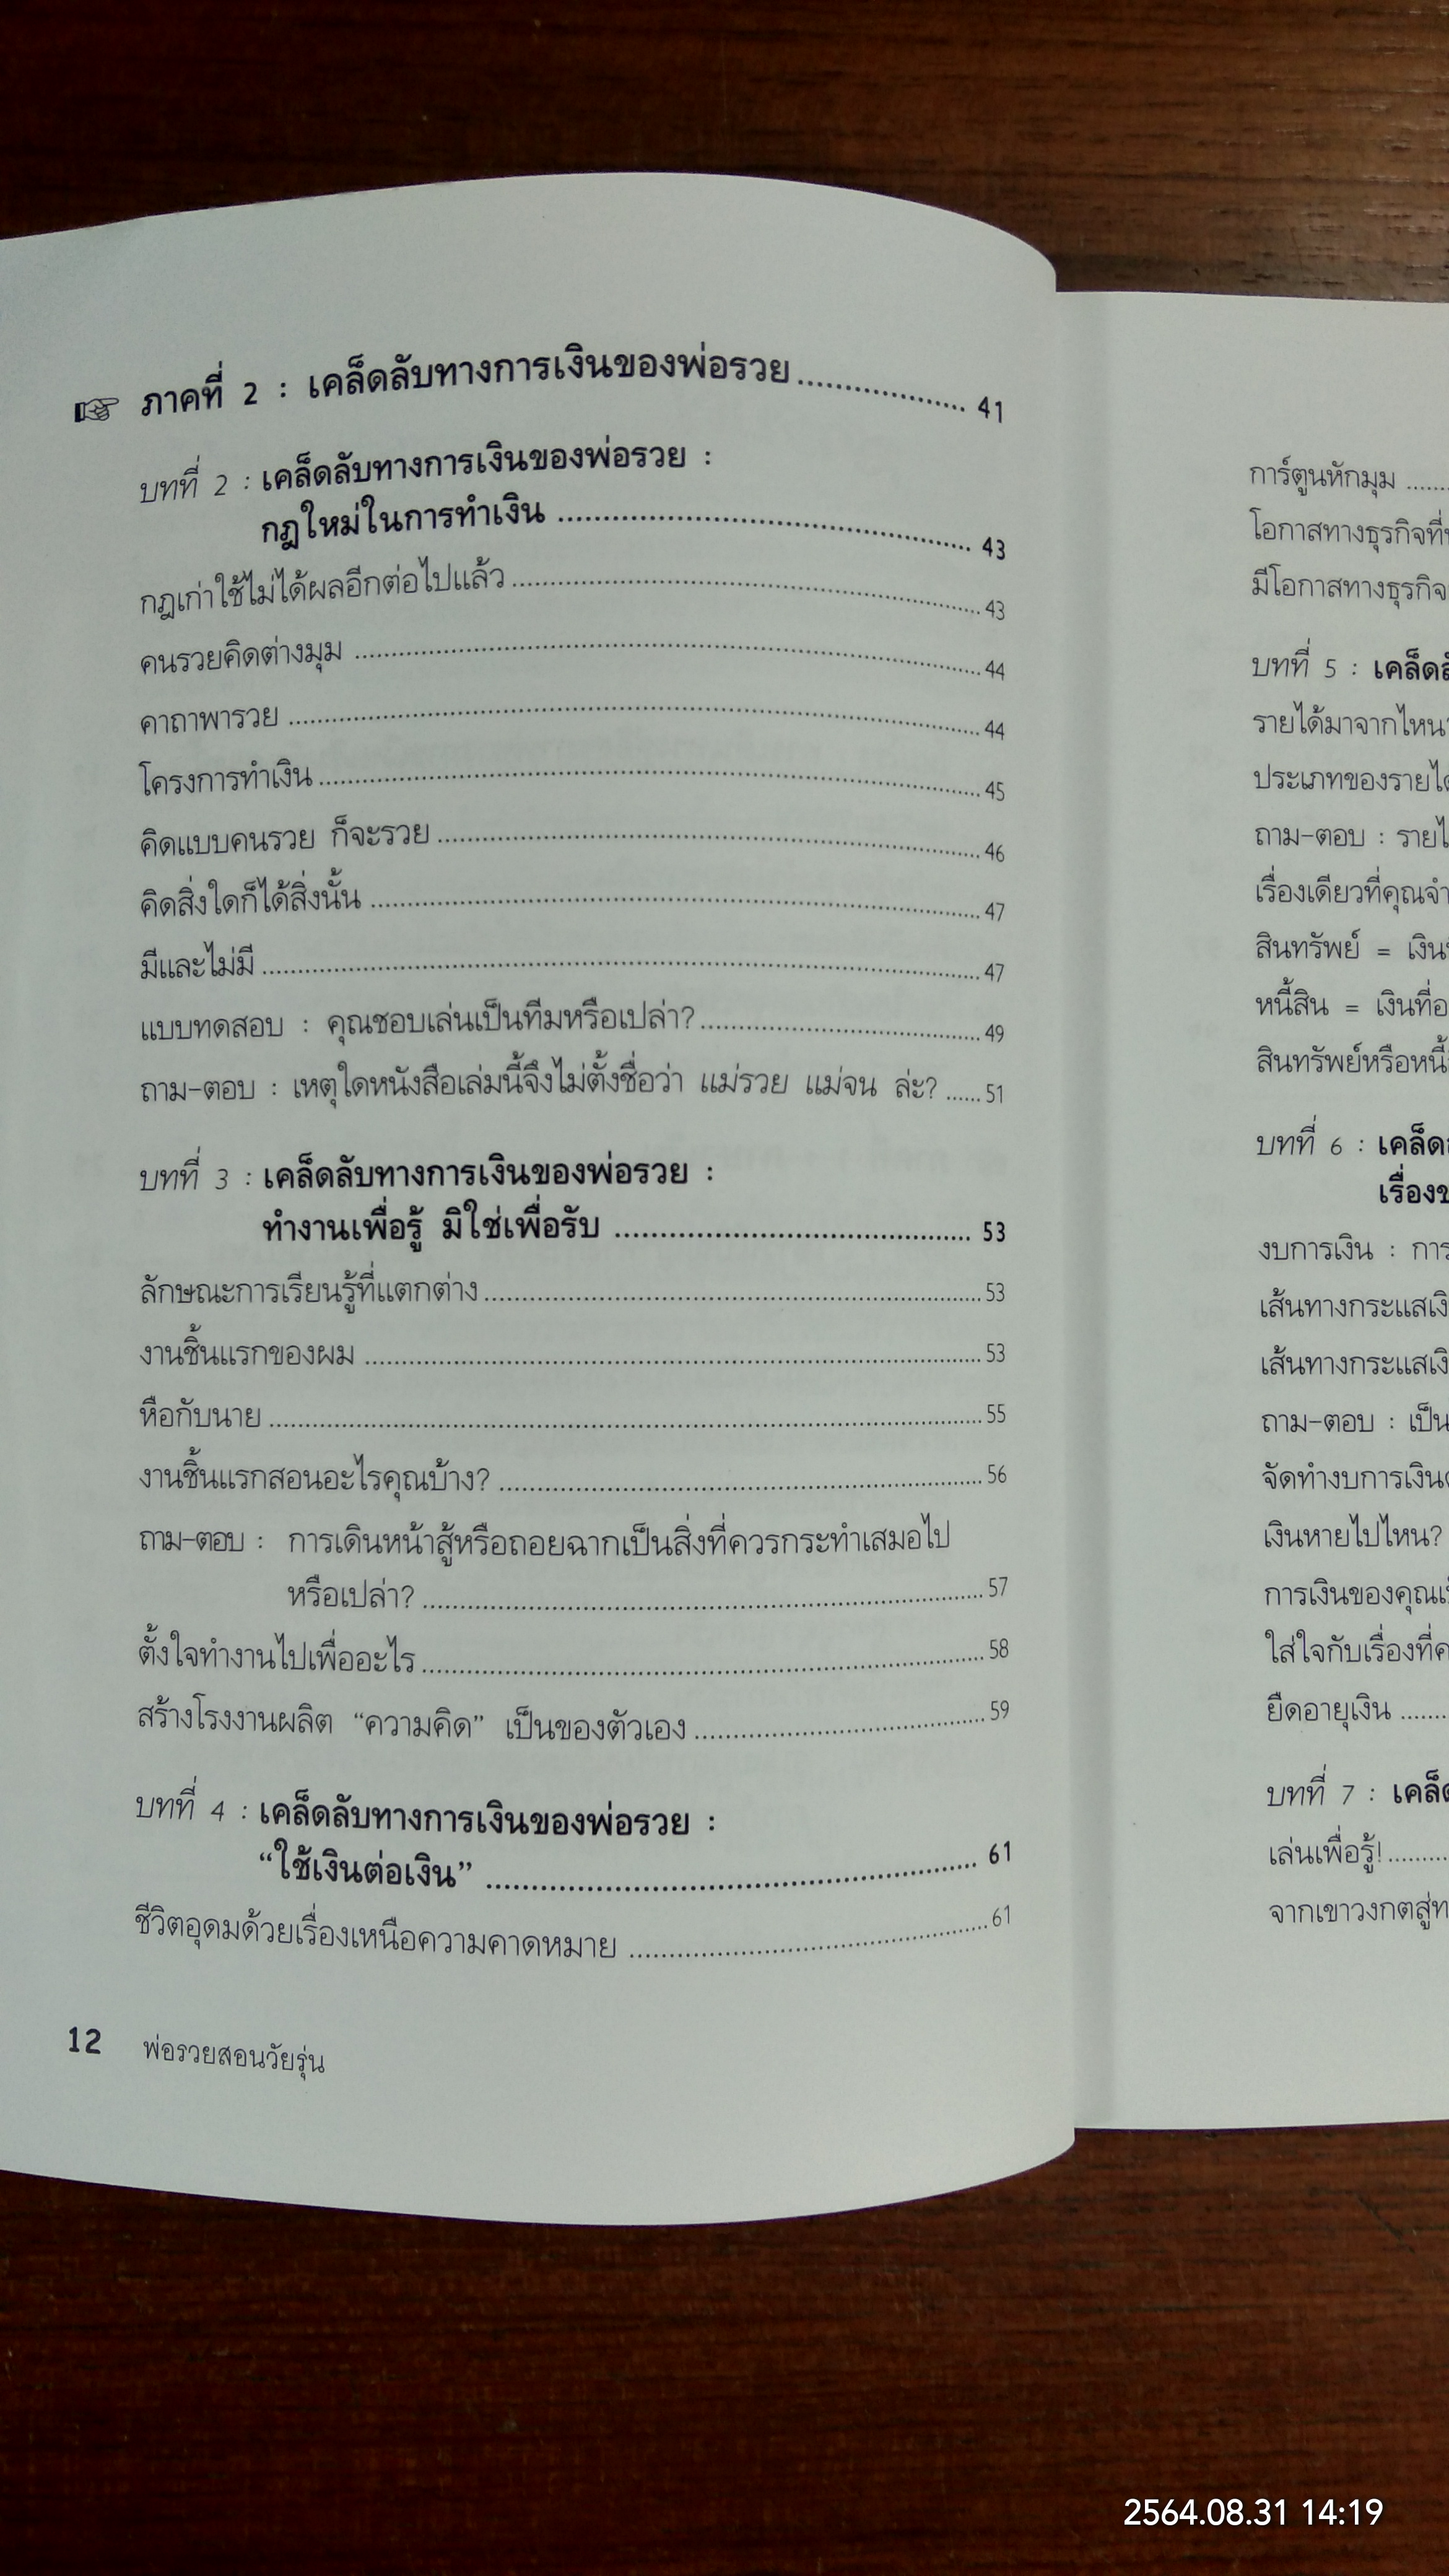 ภาคที่ 2 : เคล็ดลับทางการเงินของพ่อรวย.................... 41
บทที่ 2 : เคล็ดลับทางการเงินของพ่อรวย :
กฎใหม่ในการทำเงิน ................................................ 43
กฎเก่าใช้ไม่ได้ผลอีกต่อไปแล้ว ................................................ 43
คนรวยคิดต่างมุม ................................................ 44
คาถาพารวย ................................................ 44
โครงการทำเงิน ................................................ 45
คิดแบบคนรวย ก็จะรวย ................................................ 46
คิดสิ่งใดก็ได้สิ่งนั้น ................................................ 47
มีและไม่มี ................................................ 47
แบบทดสอบ : คุณชอบเล่นเป็นทีมหรือเปล่า? ................................ 49
ถาม-ตอบ : เหตุใดหนังสือเล่มนี้จึงไม่ตั้งชื่อว่า แม่รวย แม่จน ล่ะ? ...... 51
บทที่ 3 : เคล็ดลับทางการเงินของพ่อรวย :
ทำงานเพื่อรู้ มิใช่เพื่อรับ ........................................ 53
ลักษณะการเรียนรู้ที่แตกต่าง ................................................ 53
งานชิ้นแรกของผม ................................................ 53
หือกับนาย ................................................ 55
งานชิ้นแรกสอนอะไรคุณบ้าง? ................................................ 56
ถาม-ตอบ : การเดินหน้าสู้หรือถอยฉากเป็นสิ่งที่ควรกระทำเสมอไป
หรือเปล่า? ................................................ 57
ตั้งใจทำงานไปเพื่ออะไร ................................................ 58
สร้างโรงงานผลิต “ความคิด” เป็นของตัวเอง ................................ 59
บทที่ 4 : เคล็ดลับทางการเงินของพ่อรวย :
“ใช้เงินต่อเงิน” ................................................ 61
ชีวิตอุดมด้วยเรื่องเหนือความคาดหมาย ........................................ 61
12 พ่อรวยสอนวัยรุ่น
การ์ตูนหักมุม .......
โอกาสทางธุรกิจที่
มีโอกาสทางธุรกิจ
บทที่ 5 : เคล็ด
รายได้มาจากไหน
ประเภทของรายได้
ถาม-ตอบ : รายไ
เรื่องเดียวที่คุณจำ
สินทรัพย์ = เงิน
หนี้สิน = เงินที่
สินทรัพย์หรือหนี้
บทที่ 6 : เคล็ด
เรื่อง
งบการเงิน : การ
เส้นทางกระแสเงิ
เส้นทางกระแสเงิ
ถาม-ตอบ : เป็น
จัดทำงบการเงิน
เงินหายไปไหน?
การเงินของคุณ
ใส่ใจกับเรื่องที่
ยืดอายุเงิน .......
บทที่ 7 : เคล็ด
เล่นเพื่อรู้! .........
จากเขาวงกตสู่
2564.08.31 14:19